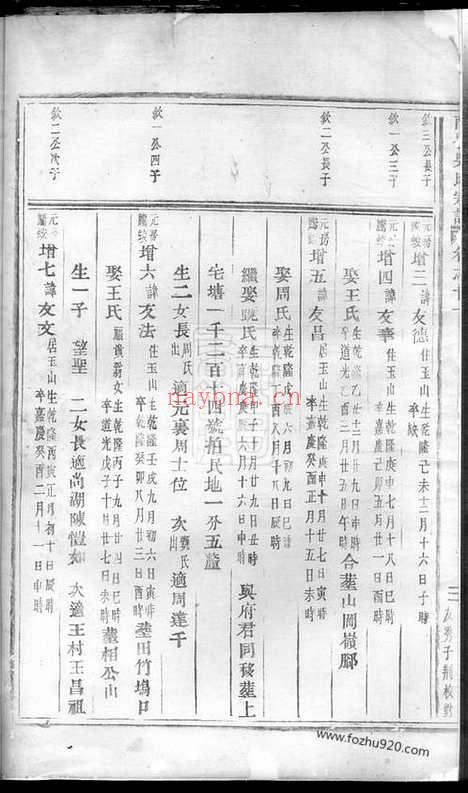 欽三公長子
元房
增三 諱友德 住玉山 生乾隆己未十二月十六日子時
卒缺
欽一公三子
元房
增四 諱友華 住玉山 生乾隆庚申七月十八日巳時
卒嘉慶乙丑四月二十一日酉時
娶王氏 生乾隆乙丑十二月廿九日
卒道光乙酉三月廿五日午時 合塟山岡嶺腳
欽二公長子
元房
增五 諱友昌 住玉山 生乾隆庚申十月十七日戌時
卒嘉慶癸酉正月十五日未時
娶周氏 生乾隆戊辰六月初九日巳時
卒乾隆丁酉八月初八日辰時
繼娶甄氏 生乾隆甲子十月廿九日丑時
卒嘉慶庚辰十月十六日申時 與府君同移塟上
宅塘一千二百十四號拍民地一分五釐
生二女長周氏出適元裏周士位 次甄氏出適周達千
欽一公四子
元房
增六 諱友法 住玉山 生乾隆壬戌九月初六日寅時
卒乾隆癸卯八月廿三日酉時 塟田竹塢口
娶王氏 生乾隆丙子九月廿四日巳時
卒道光戊子十月廿七日未時 塟相公山
生一子 望聖 二女長適尚湖陳愷 次適王村王昌祖
欽二公次子
元房
增七 諱友文 居玉山 生乾隆丙寅正月初十日辰時
卒嘉慶癸酉二月十一日申時
nayona.cn
www.fozhu920.com